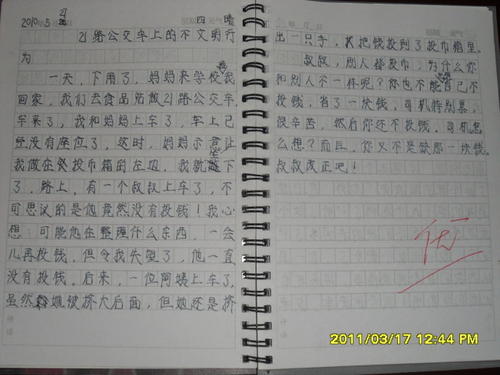 2010.5 四 晴
21路公交车上的不文明行
为
一天，下用了，妈妈来学校接
回家，我们去食品站做21路公交车，
车来了，我和妈妈上车了，车上已
经没有座位了，这时，妈妈示意让
我做在投币箱的左边，我就坐下
了，路上，有一个叔叔上车了，不
可思议的是他竟然没有投钱！我心
想：可能他在整理什么东西，一会
儿再投钱，但令我失望了，他一直
没有投钱，后来，一位阿姨上车了，
虽然她被挤大后面，但她还是挤
出一只手，把钱投到了投币箱里。
叔叔，别人投币，为什么你
和别人不一样呢？你也不能
投钱，省了一块钱，司机特别
很辛苦，然后你还不投钱，司机怎
么想？而且，你又不是缺那一块钱，
叔叔改正吧！
优
2011/03/17 12:44 PM